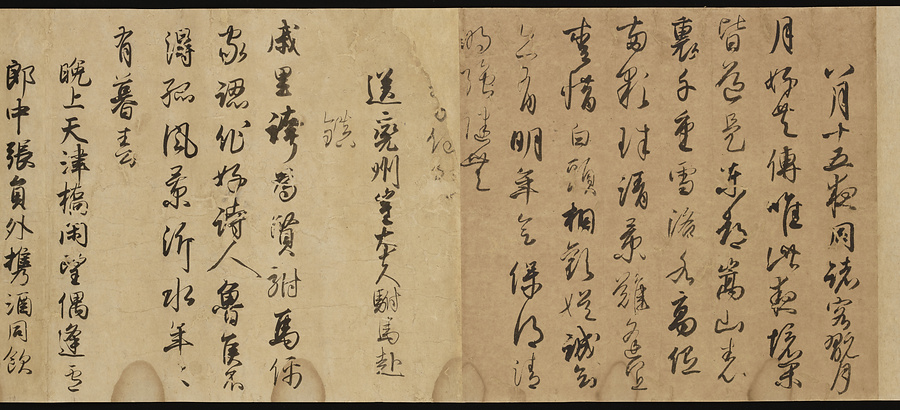 八月十五夜同諸客翫月
月好共傳唯此夜境閑
皆道是東都嵩山表
裏千重雪洛水高低
兩顆珠清景難逢宜
愛惜白頭相歡娛誠知
亦有明年會保得清
明強健無
送兗州崔大夫駙馬赴
鎮
戚里誇為賢駙馬儒
家認作好詩人魯侯不
得孤風景沂水年々
有暮春
晚上天津橋閑望偶逢盧
郎中張員外攜酒同飲